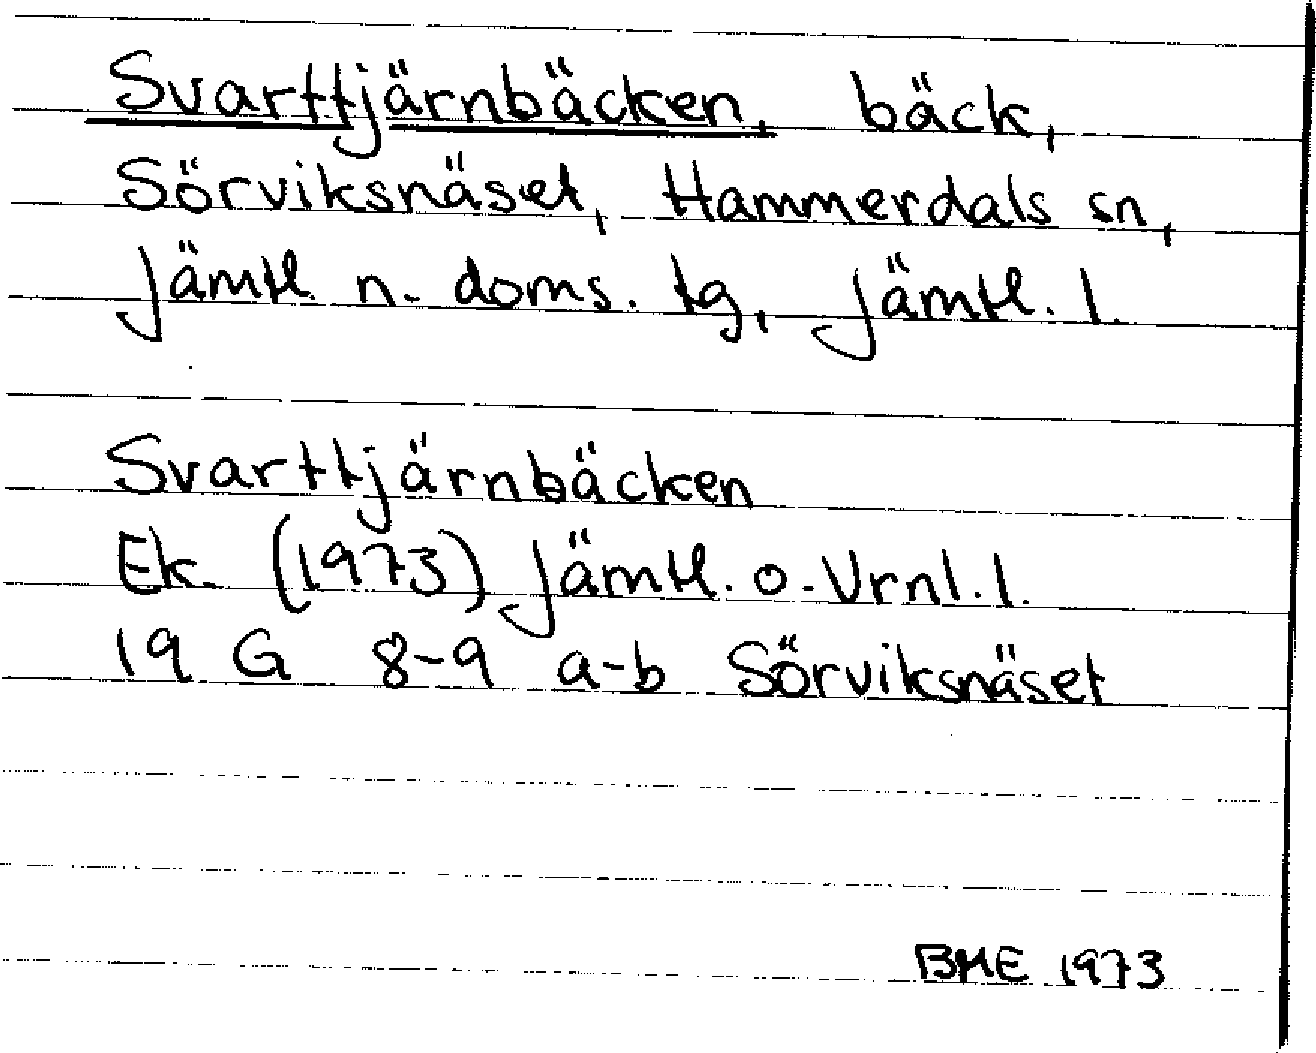 Svarttjärnbäcken, bäck,
Sörviksnäset, Hammerdals sn,
Jämtl. n. doms. tg, Jämtl. l.
Svarttjärnbäcken
Ek. (1973) Jämtl. o. Vrnl. l.
19 G 8-9 a-b Sörviksnäset
BME 1973